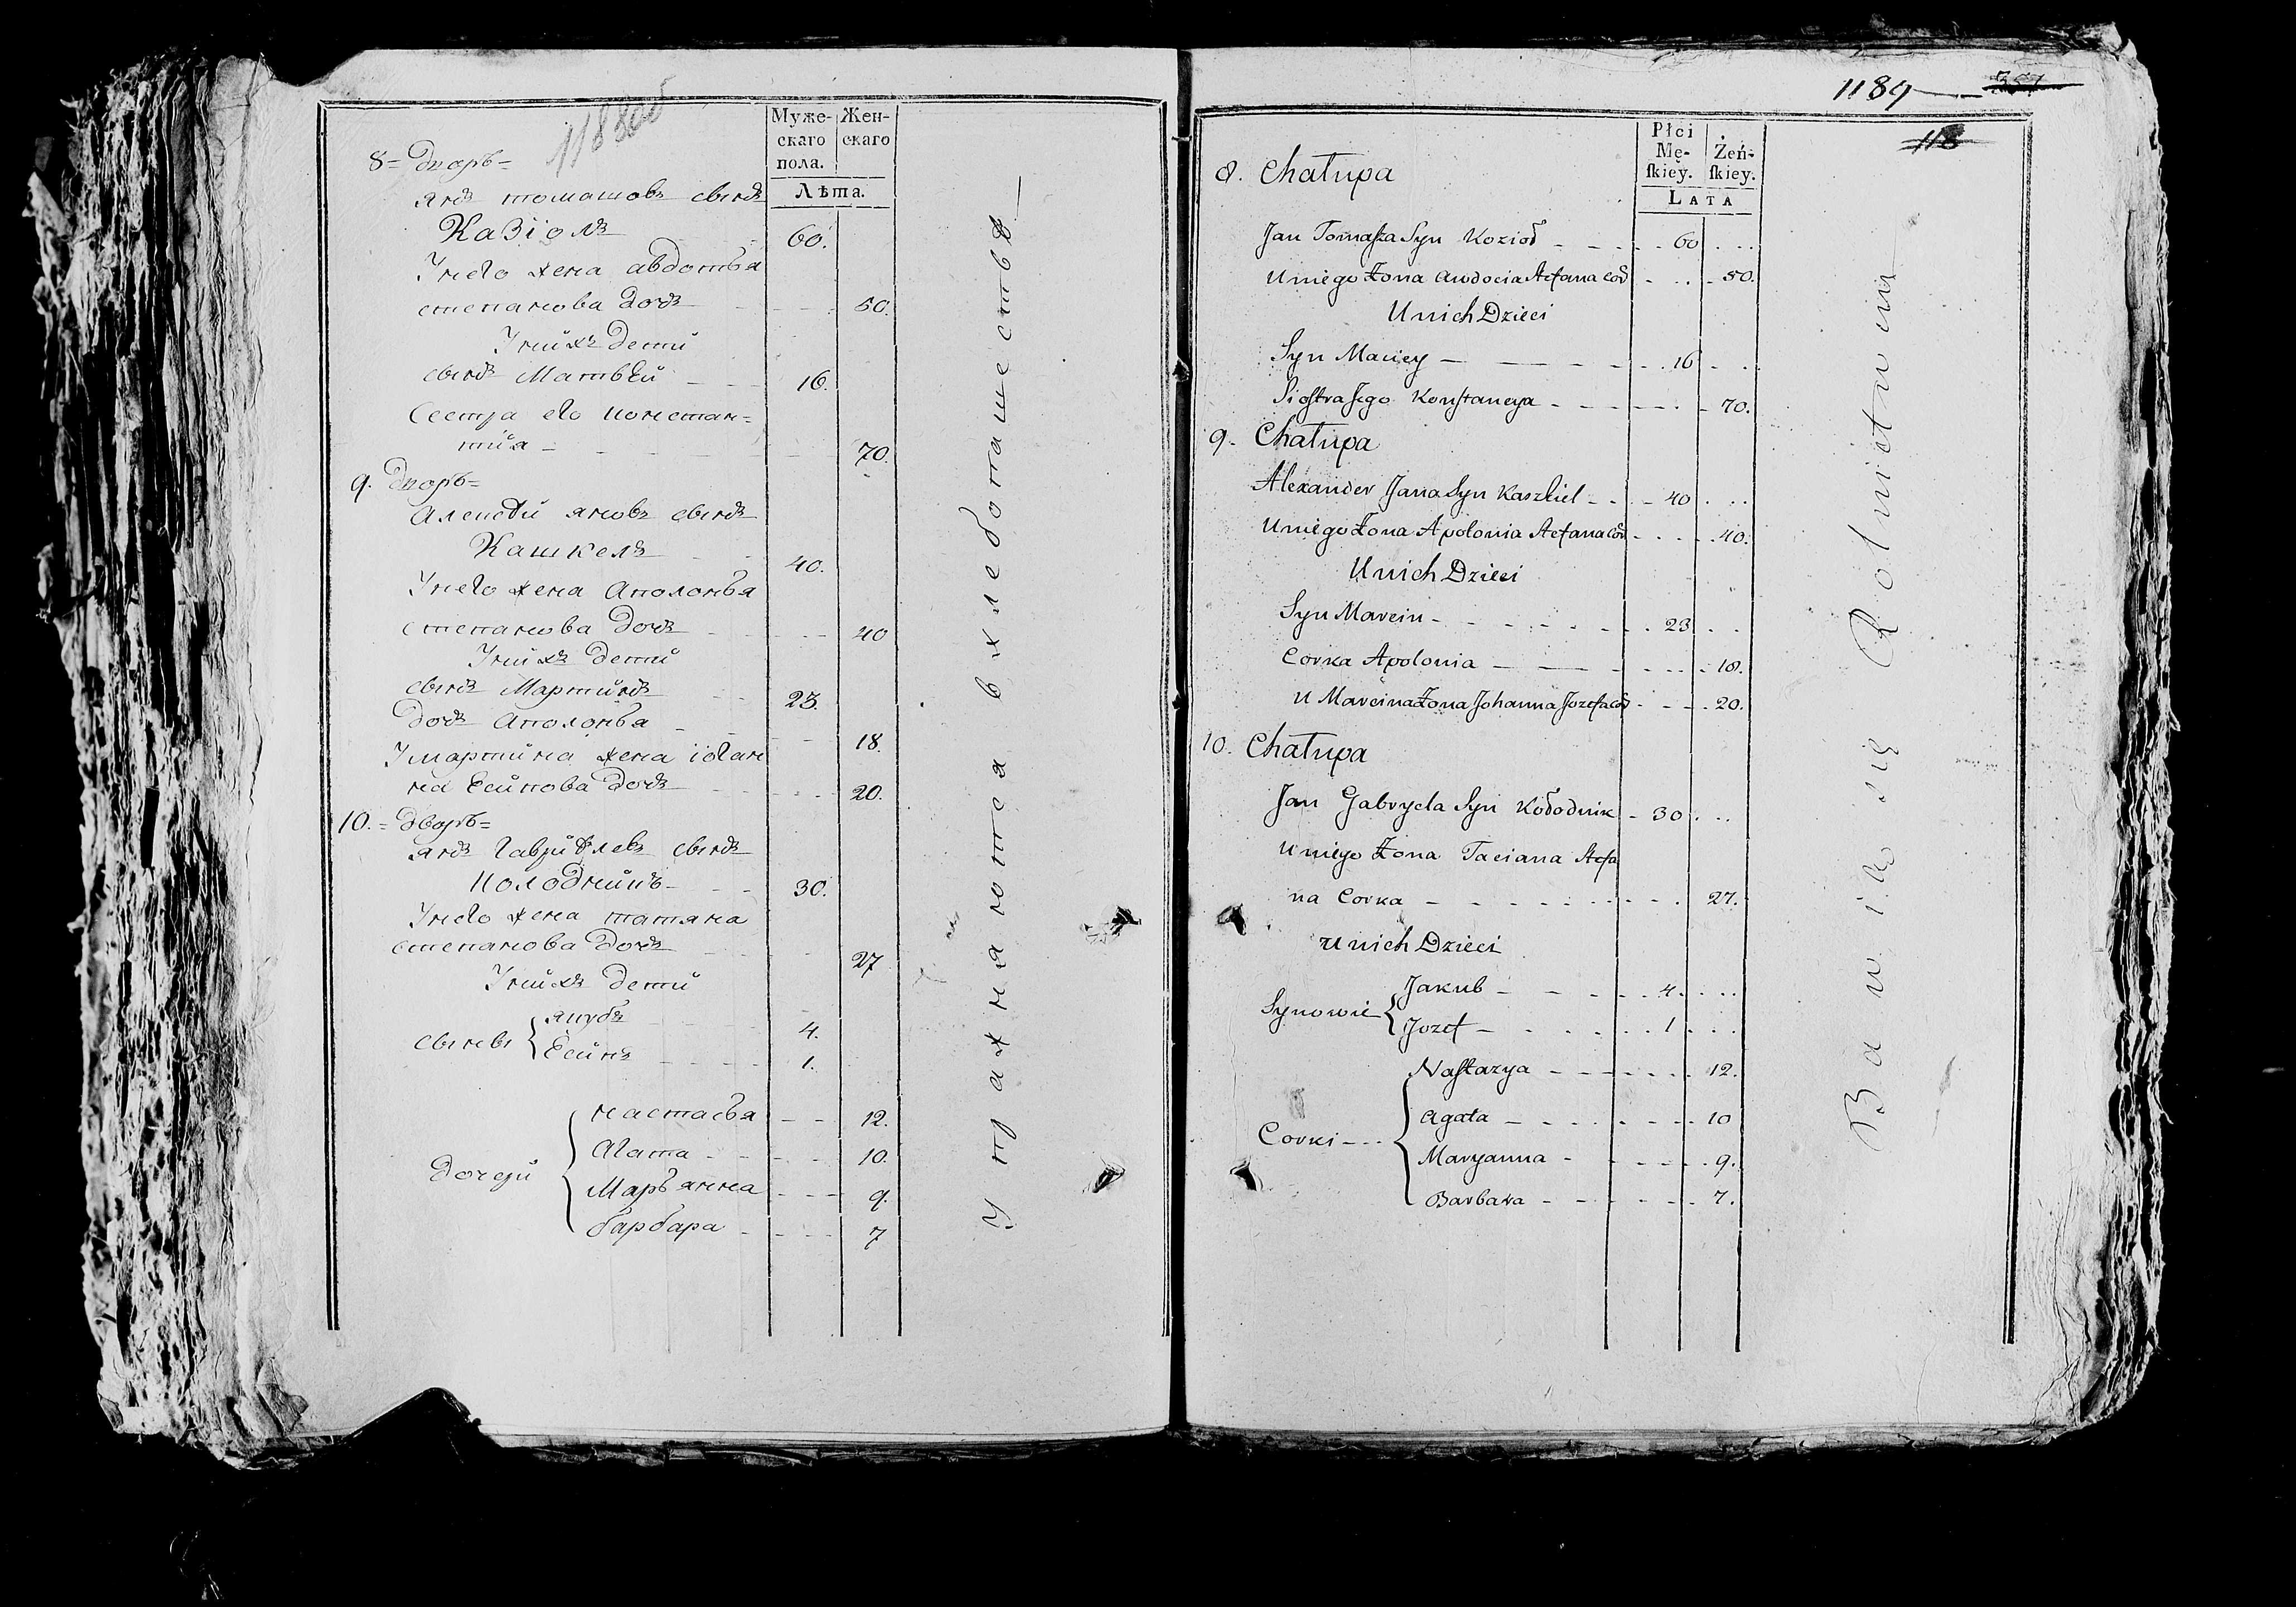 1188об
Муже-
скаго
пола.
Жен-
скаго
Лѣта.
8= Дворъ=
янъ томашовъ сынъ
Казiолъ 60.
Унего жена авдотья
степанова дочь 50.
Унихъ дети
сынъ Матвѣй 16.
Сестра его констан=
тия 70.
9. Дворъ=
Алексѣй яновъ сынъ
Кашкелъ 40.
Унего жена Аполонья
степанова дочь 40
Унихъ дети
сынъ Мартинъ 23.
дочь Аполонья 18.
Умартина жена iоган
на Есипова дочь 20.
10.= дворъ=
янъ Гаврiилевъ сынъ
Колодникъ 30.
Унего жена татяна
степанова дочь 27
Унихъ дети
сыновья
якубъ 4.
Есипъ 1.
дочери
настасья 12.
Агата 10.
Марьянна 9.
барбара 7
Упражняются в хлебопашестве
1189 357
118
Płci
Mę-
ſkiey.
Żeń-
ſkiey.
LATA
8. Chałupa
Jan Tomaſza Syn Kozioł 60
U niego Żona Awdocia Stefana Cór 50.
U nich Dzieci
Syn Maciey 16
Siostra Jego Konſtancya 70.
9. Chałupa
Alexander Jana Syn Kaszkiel 40
U niego Żona Apolonia Stefana Cór 40.
U nich Dzieci
Syn Marcin 23
Corka Apolonia 18.
U Marcina Żona Johanna Jozefa Cór 20.
10. Chałupa
Jan Gabryela Syn Kołodnik 30
U niego Żona Taciana Stefa
na Corka 27.
U nich Dzieci
Synowie
Jakub 4.
Jozef 1
Corki
Naſtazya 12.
Agata 10
Maryanna 9.
Barbara 7.
Bawią się Rolnictwem